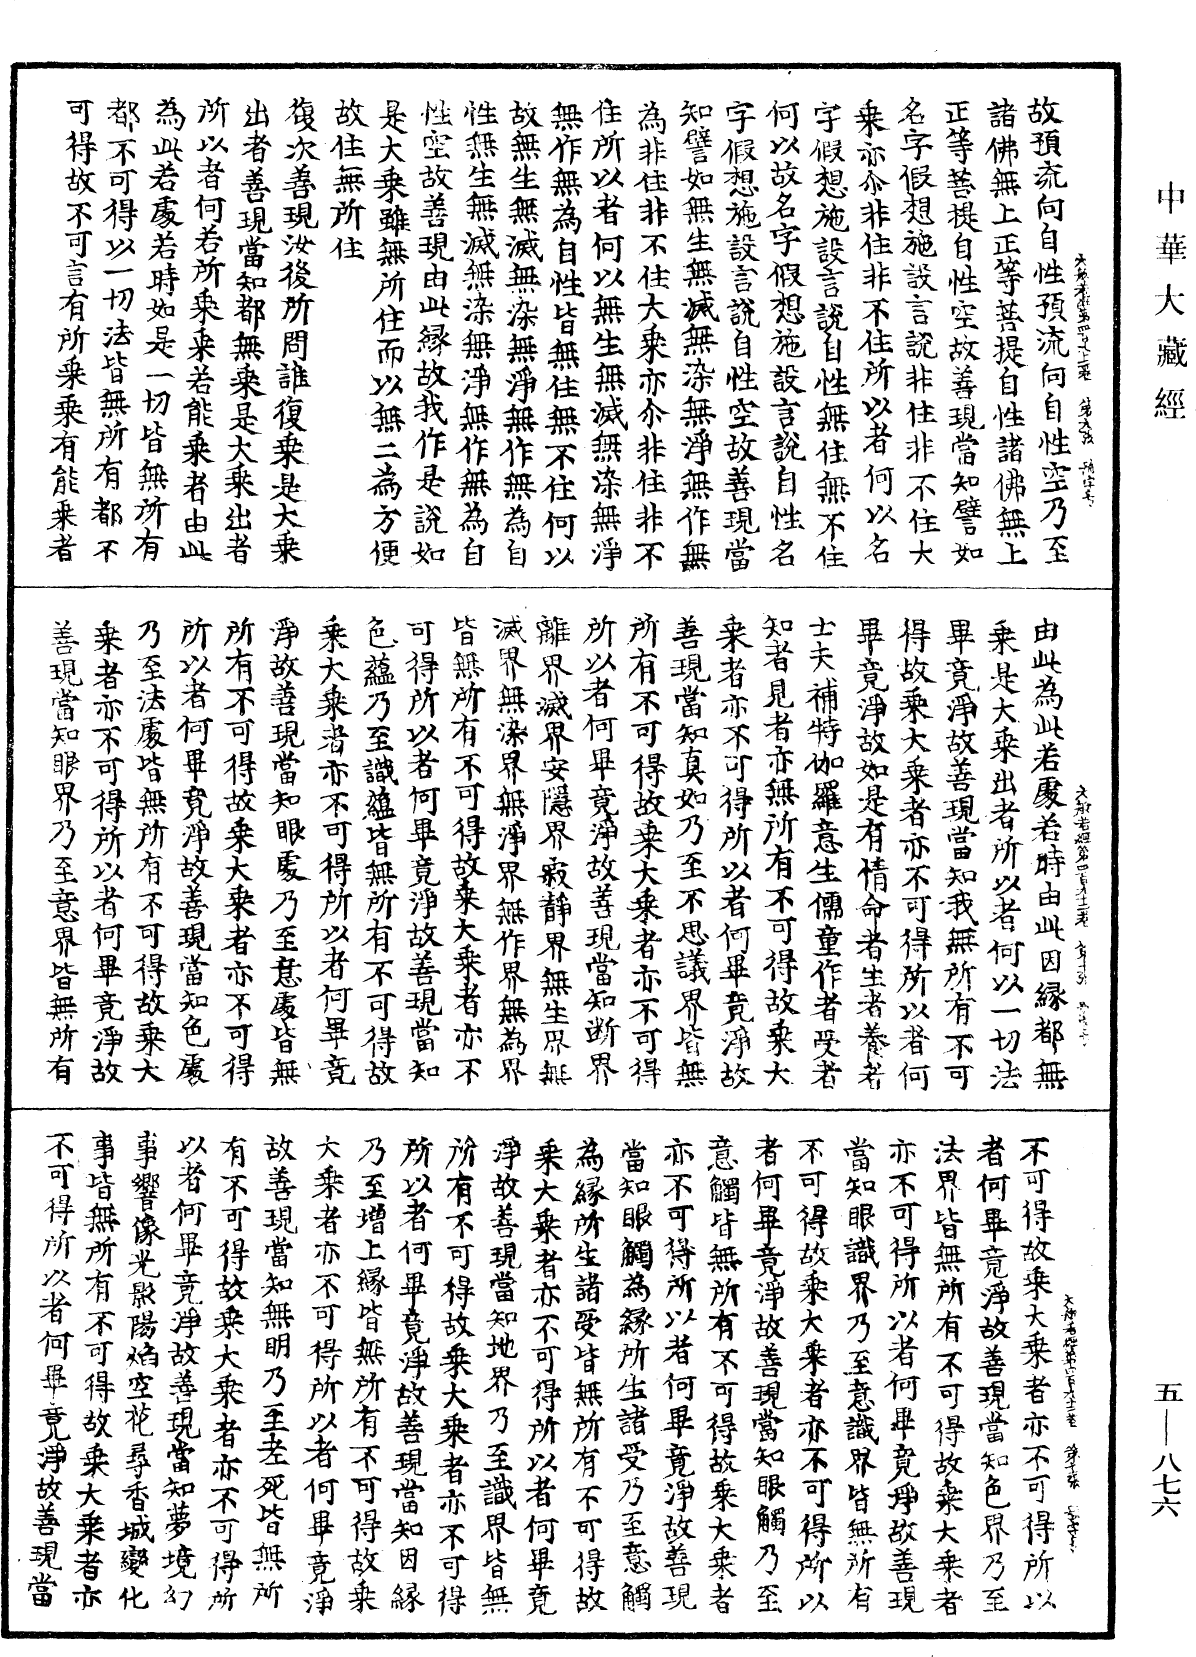 中華大藏經
故預流向自性預流向自性空乃至
諸佛無上正等菩提自性諸佛無上
正等菩提自性空故善現當知譬如
名字假想施設言說非住非不住大
乘亦尒非住非不住所以者何以名
字假想施設言說自性無住無不住
何以故名字假想施設言說自性名
字假想施設言說自性空故善現當
知譬如無生無滅無染無淨無作無
為非住非不住大乘亦尒非住非不
住所以者何以無生無滅無染無淨
無作無為自性皆無住無不住何以
故無生無滅無染無淨無作無為自
性無生無滅無染無淨無作無為自
性空故善現由此緣故我作是說如
是大乘雖無所住而以無二為方便
故住無所住
復次善現汝後所問誰復乘是大乘
出者善現當知都無乘是大乘出者
所以者何若所乘乘若能乘者由此
為此若處若時如是一切皆無所有
都不可得以一切法皆無所有都不
可得故不可言有所乘乘有能乘者
由此為此若處若時由此因緣都無
乘是大乘出者所以者何以一切法
畢竟淨故善現當知我無所有不可
得故乘大乘者亦不可得所以者何
畢竟淨故如是有情命者生者養者
士夫補特伽羅意生儒童作者受者
知者見者亦無所有不可得故乘大
乘者亦不可得所以者何畢竟淨故
善現當知真如乃至不思議界皆無
所有不可得故乘大乘者亦不可得
所以者何畢竟淨故善現當知斷界
離界滅界安隱界寂靜界無生界無
滅界無染界無淨界無作界無為界
皆無所有不可得故乘大乘者亦不
可得所以者何畢竟淨故善現當知
色蘊乃至識蘊皆無所有不可得故
乘大乘者亦不可得所以者何畢竟
淨故善現當知眼處乃至意處皆無
所有不可得故乘大乘者亦不可得
所以者何畢竟淨故善現當知色處
乃至法處皆無所有不可得故乘大
乘者亦不可得所以者何畢竟淨故
善現當知眼界乃至意界皆無所有
不可得故乘大乘者亦不可得所以
者何畢竟淨故善現當知色界乃至
法界皆無所有不可得故乘大乘者
亦不可得所以者何畢竟淨故善現
當知眼識界乃至意識界皆無所有
不可得故乘大乘者亦不可得所以
者何畢竟淨故善現當知眼觸乃至
意觸皆無所有不可得故乘大乘者
亦不可得所以者何畢竟淨故善現
當知眼觸為緣所生諸受乃至意觸
為緣所生諸受皆無所有不可得故
乘大乘者亦不可得所以者何畢竟
淨故善現當知地界乃至識界皆無
所有不可得故乘大乘者亦不可得
所以者何畢竟淨故善現當知因緣
乃至增上緣皆無所有不可得故乘
大乘者亦不可得所以者何畢竟淨
故善現當知無明乃至老死皆無所
有不可得故乘大乘者亦不可得所
以者何畢竟淨故善現當知夢境幻
事響像光影陽焰空花尋香城變化
事皆無所有不可得故乘大乘者亦
不可得所以者何畢竟淨故善現當
五—八七六